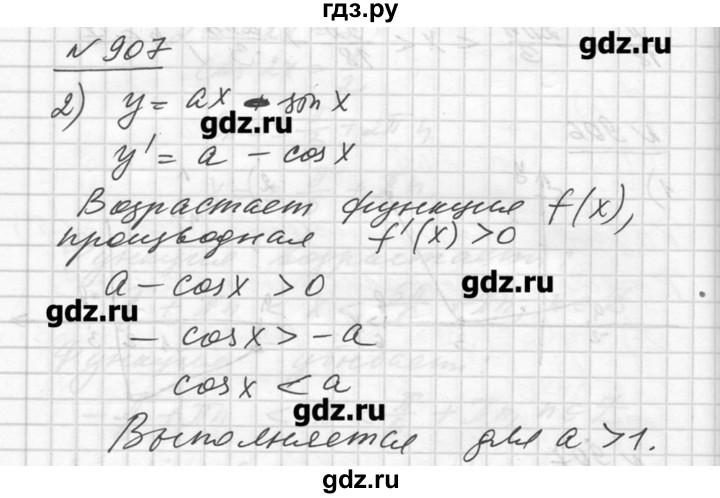 гдз.ру
№ 907
gdz.ru
2) y = ax - sin x
gdz.ru
y' = a - cos x
Возрастает функция f(x),
производная f'(x) > 0
a - cos x > 0
gdz.ru
gdz.ru
- cos x > - a
cos x < a
gdz.ru
Выполняется для a > 1.
gdz.ru